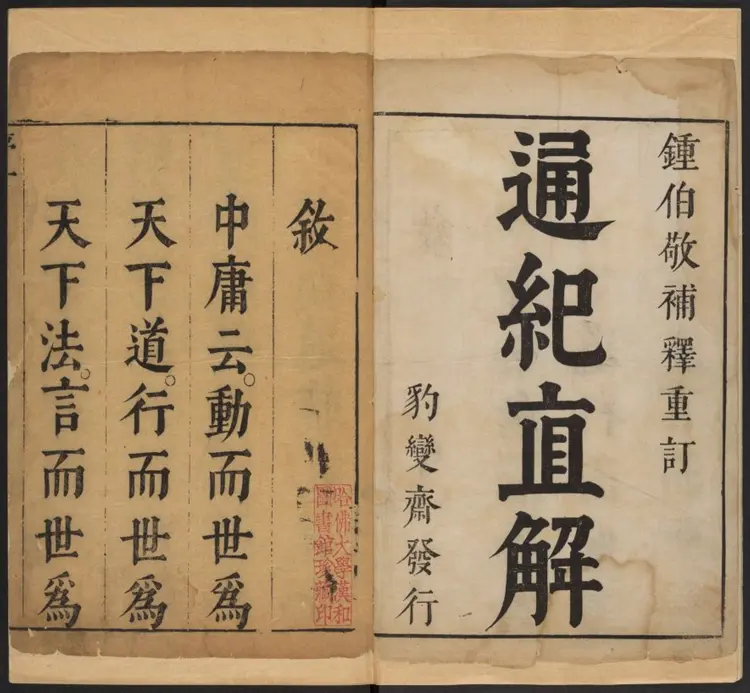 鍾伯敬補釋重訂
通紀直解
豹變齋發行
敘
中庸云。動而世爲
天下道。行而世爲
天下法。言而世爲
哈佛大學漢和
圖書館珍藏印